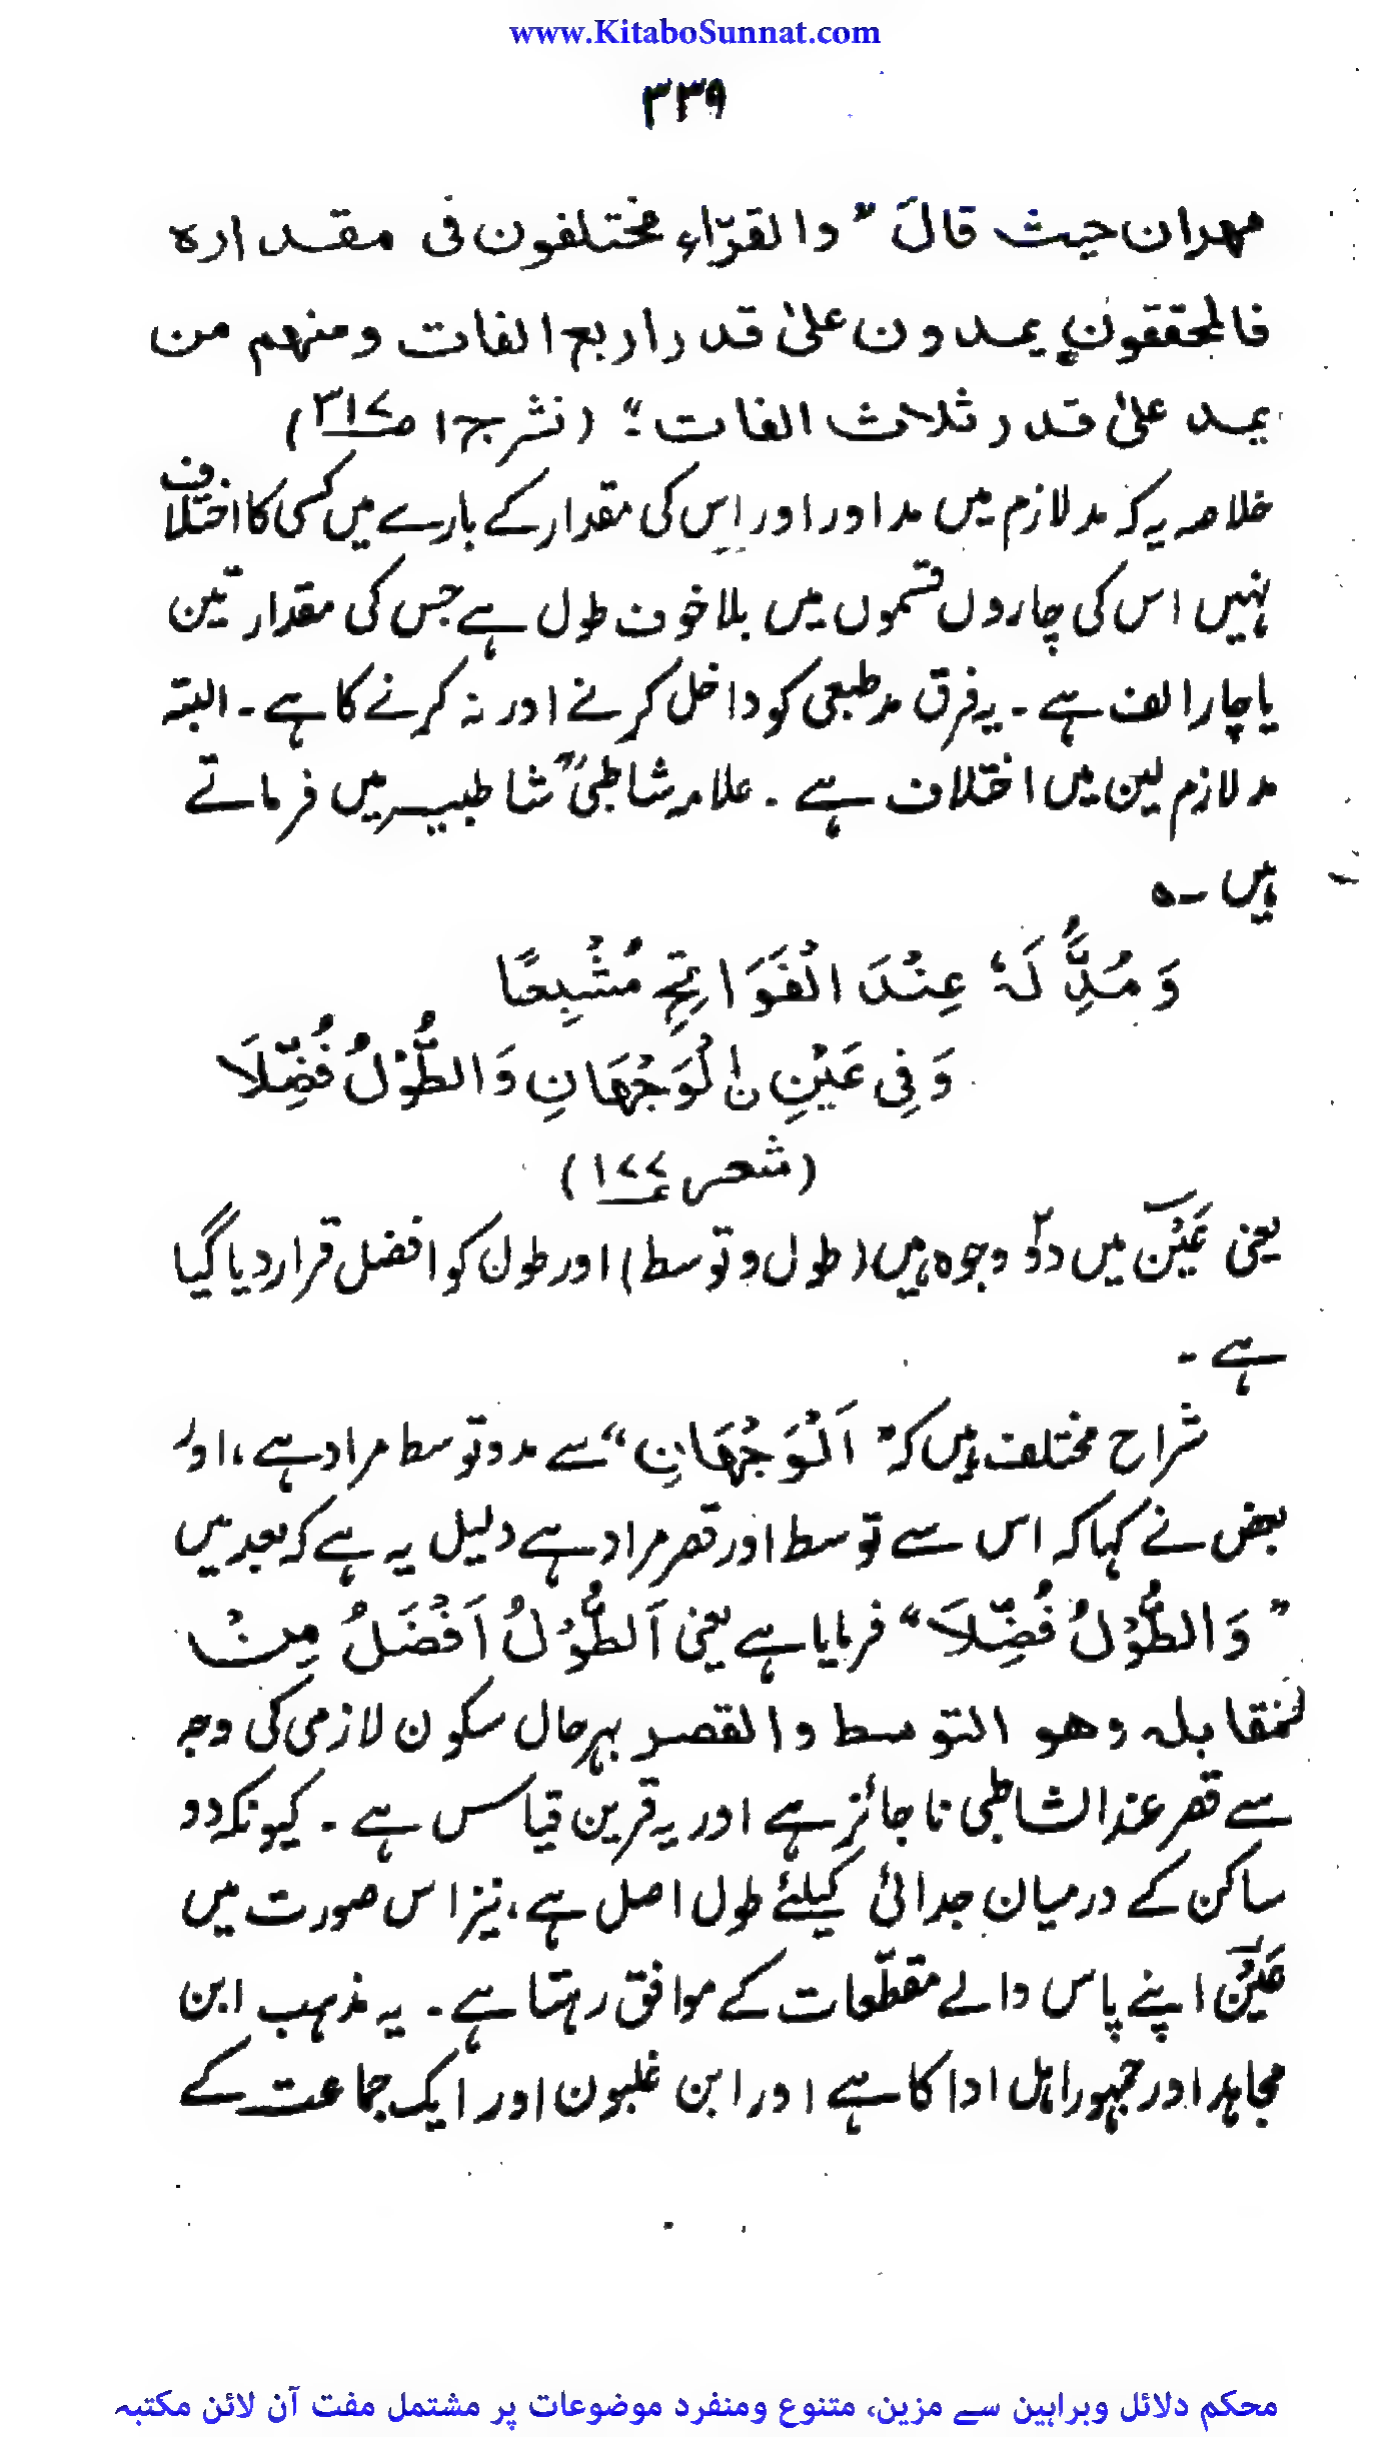 www.KitaboSunnat.com
۳۳۹
مہران حیث قالَ ” والقرّاء مختلفون فی مقدارہ
فالمحققون یمدون علیٰ قدر اربع الفات ومنھم من
یمد علیٰ قدر ثلاث الفات ؛“ (نشر ج۱ ص۳۱۷)
خلاصہ یہ کہ مد لازم میں مد اور اور اس کی مقدار کے بارے میں کسی کا اختلاف
نہیں اس کی چاروں قسموں میں بلا خوف طول ہے جس کی مقدار تین
یا چار الف ہے ۔ یہ فرق مد طبعی کو داخل کرنے اور نہ کرنے کا ہے ۔ البتہ
مد لازم لین میں اختلاف ہے ۔ علامہ شاطبیؒ شاطبیہ میں فرماتے
ہیں ؎
وَ مُدِّ لَہٗ عِنْدَ الْفَوَاتِحِ مُشْبِعًا
وَفِی عَیْنٍ نِ الْوَجْھَانِ وَالطُّوْلُ فُضِّلَا
(شعر ۱۷۷)
یعنی عَیْن میں دوؔ وجوہ ہیں (طول و توسط) اور طول کو افضل قرار دیا گیا
ہے ۔
شراح مختلف ہیں کہ ” اَلْوَجْھَانِ “ سے مد و توسط مراد ہے ، اور
بعض نے کہا کہ اس سے توسط اور قصر مراد ہے دلیل یہ ہے کہ بعد میں
” وَالطُّوْلُ فُضِّلَا “ فرمایا ہے یعنی اَلطُّوْلُ اَفْضَلُ مِنْ
لمقابلہ وھو التوسط والقصر بہرحال سکون لازمی کی وجہ
سے قصر عند الشاطبی ناجائز ہے اور یہ قرین قیاس ہے ۔ کیونکہ دو
ساکن کے درمیان جدائی کیلئے طول اصل ہے ، نیز اس صورت میں
عَیْن اپنے پاس والے مقطّعات کے موافق رہتا ہے ۔ یہ مذہب ابن
مجاہد اور جمہور اہل ادا کا ہے اور ابن غلبون اور ایک جماعت کے
محکم دلائل وبراہین سے مزین، متنوع ومنفرد موضوعات پر مشتمل مفت آن لائن مکتبہ